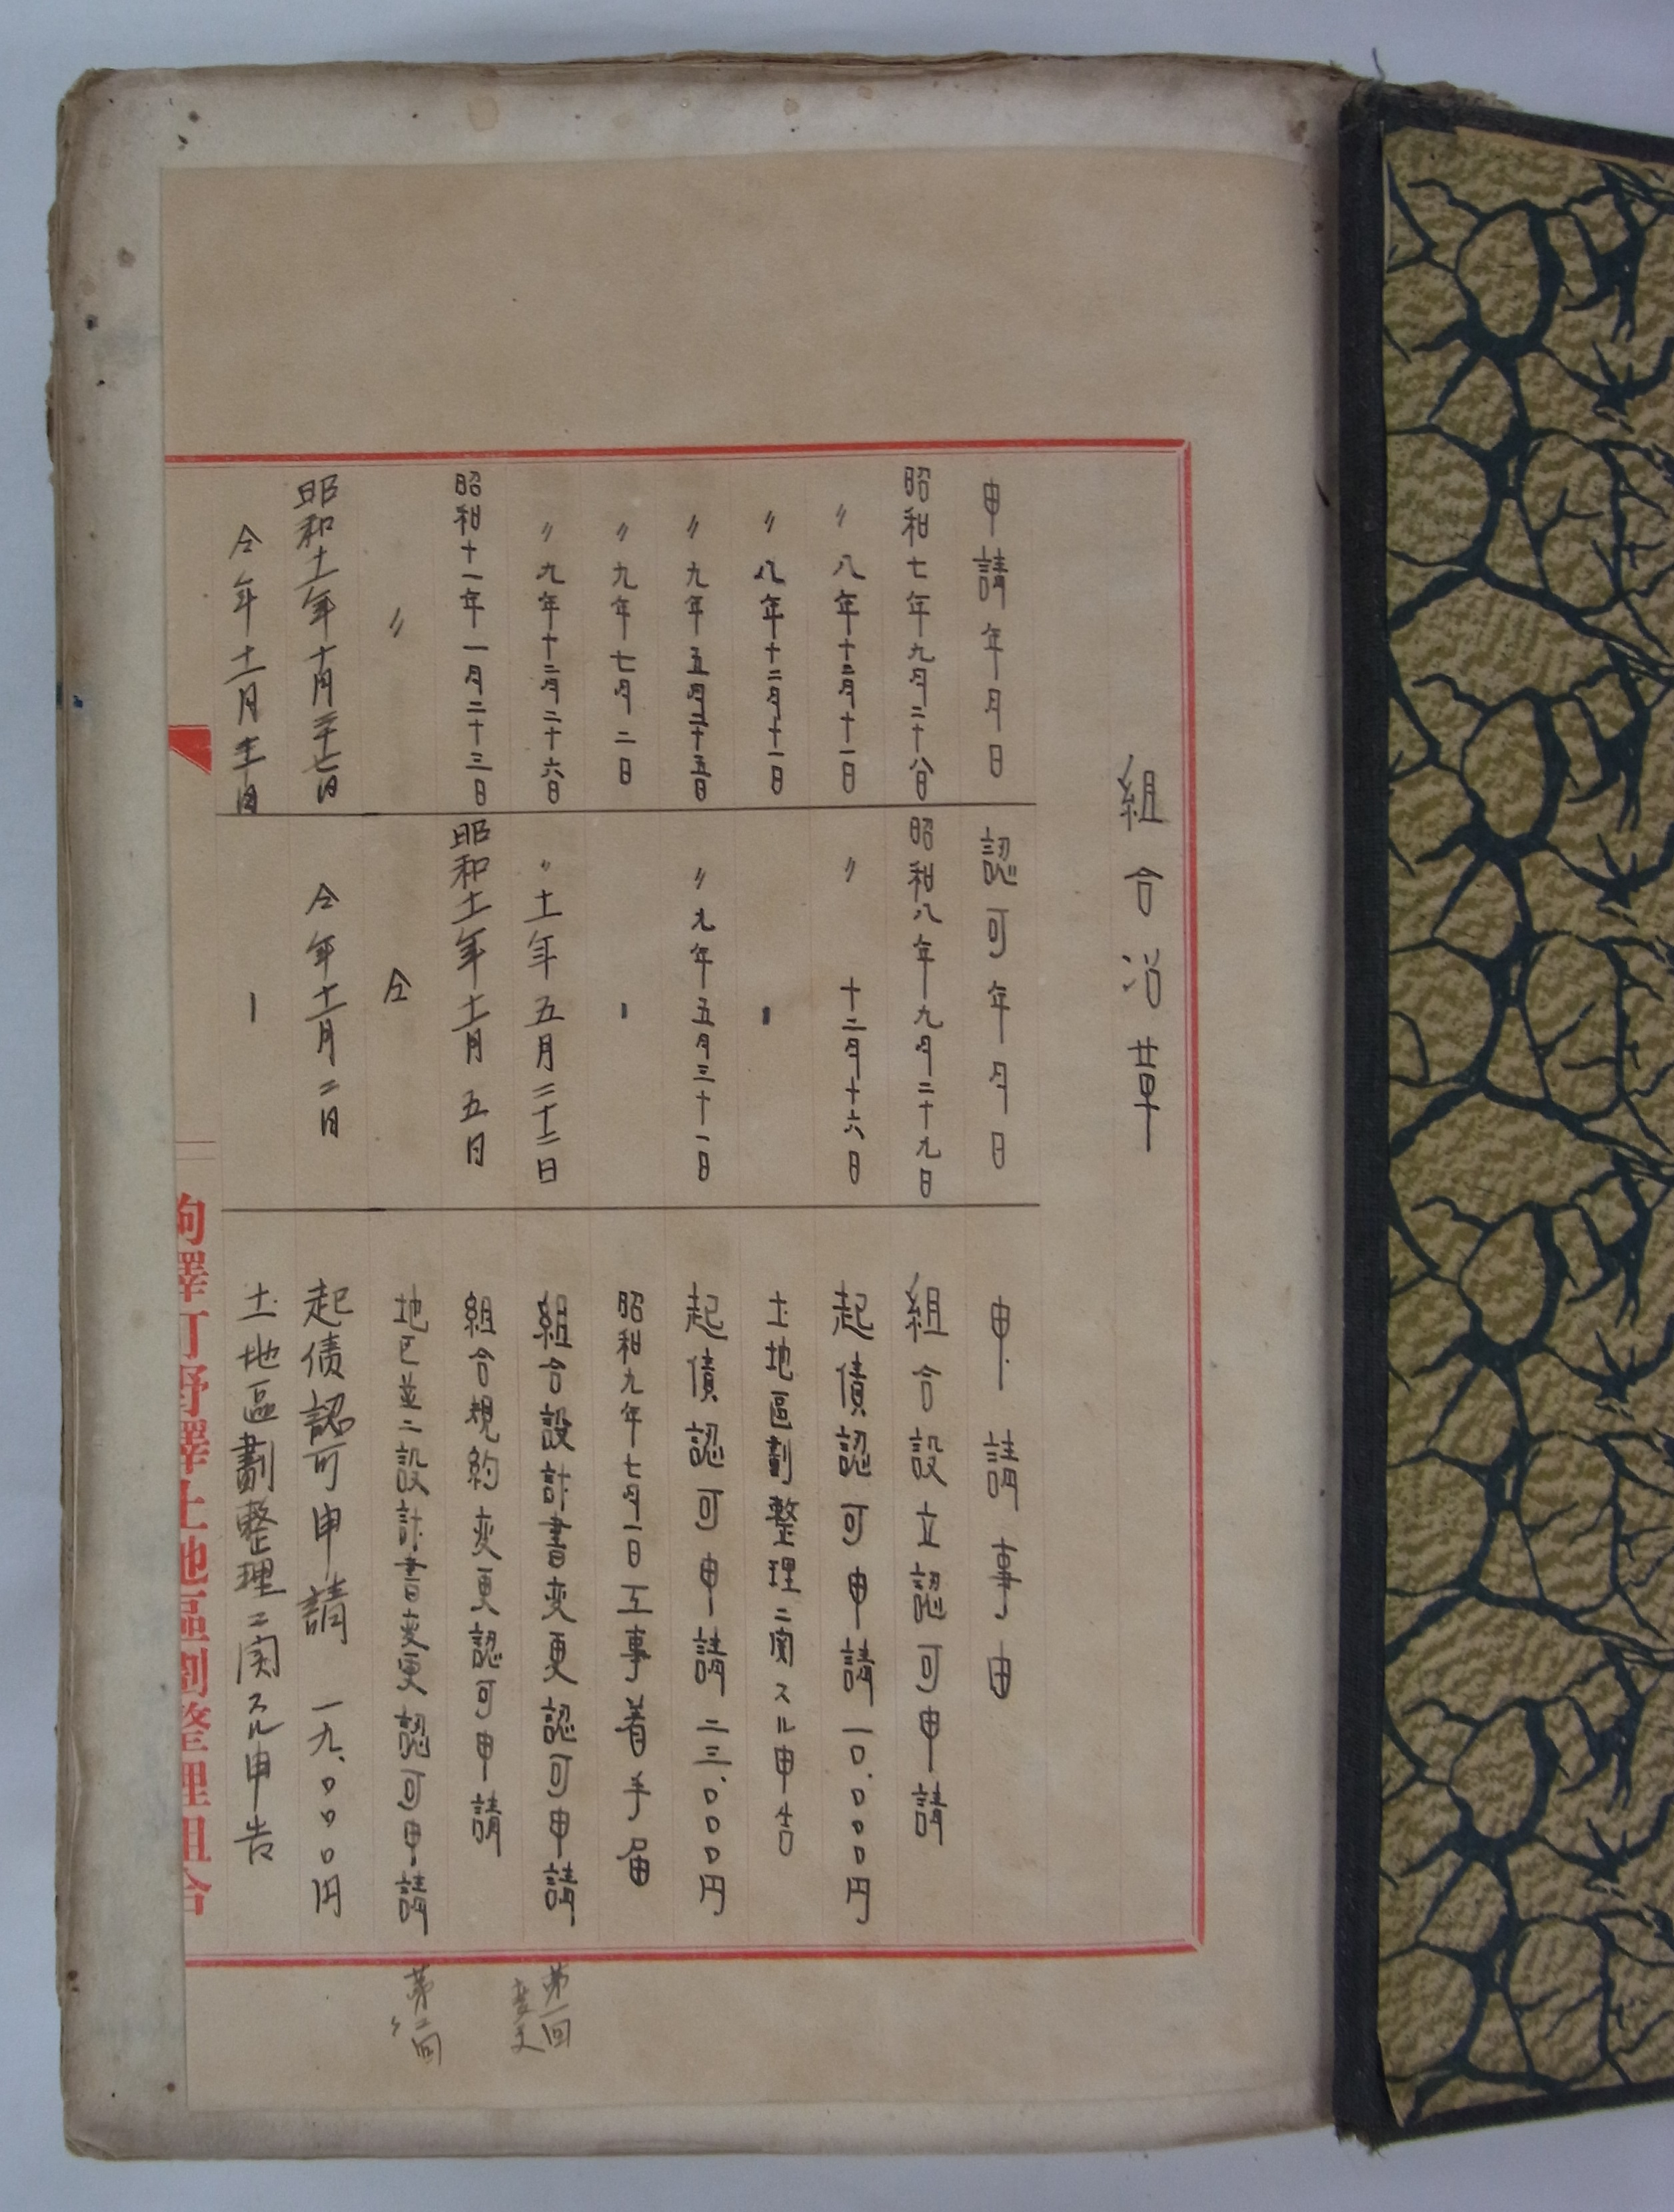 組合沿革
申請年月日 認可年月日 申請事由
昭和七年九月二十八日 昭和八年九月二十九日 組合設立認可申請
〃 八年十二月十一日 〃 十二月十六日 起債認可申請 一〇.〇〇〇円
〃 八年十二月十一日 ー 土地區劃整理ニ関スル申告
〃 九年五月二十五日 〃 九年五月三十一日 起債認可申請 二三.〇〇〇円
〃 九年七月二日 ー 昭和九年七月一日工事着手届
〃 九年十二月二十六日 〃 十一年五月二十二日 組合設計書変更認可申請 第一回変更
昭和十一年一月二十三日 昭和十一年十一月五日 組合規約変更認可申請
〃 仝 地区並ニ設計書変更認可申請 第二回〃
昭和十一年十月二十七日 仝年十一月二日 起債認可申請 一九.〇〇〇円
仝年十一月 ー 土地區劃整理ニ関スル申告
駒澤町野澤土地區劃整理組合